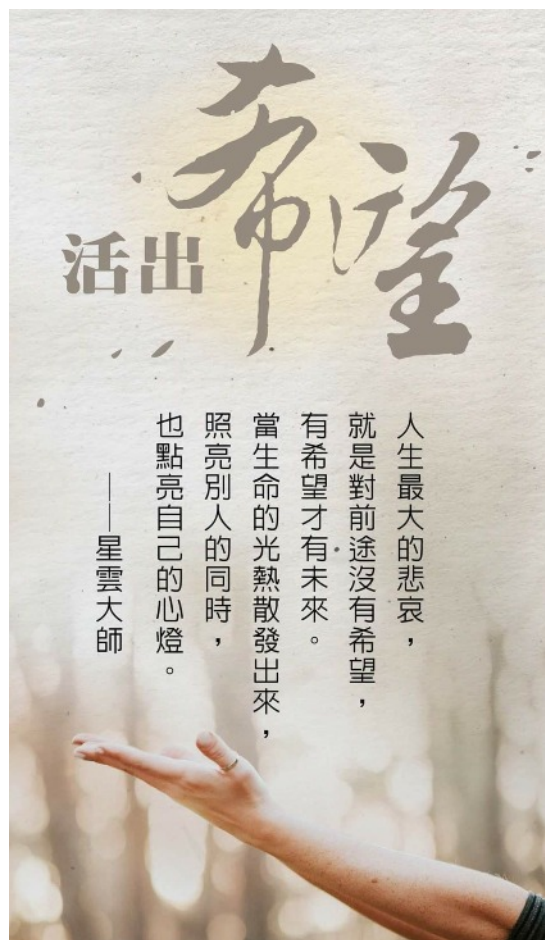 活出
希望
人生最大的悲哀，
就是對前途沒有希望，
有希望才有未來。
當生命的光熱散發出來，
照亮別人的同時，
也點亮自己的心燈。
──星雲大師